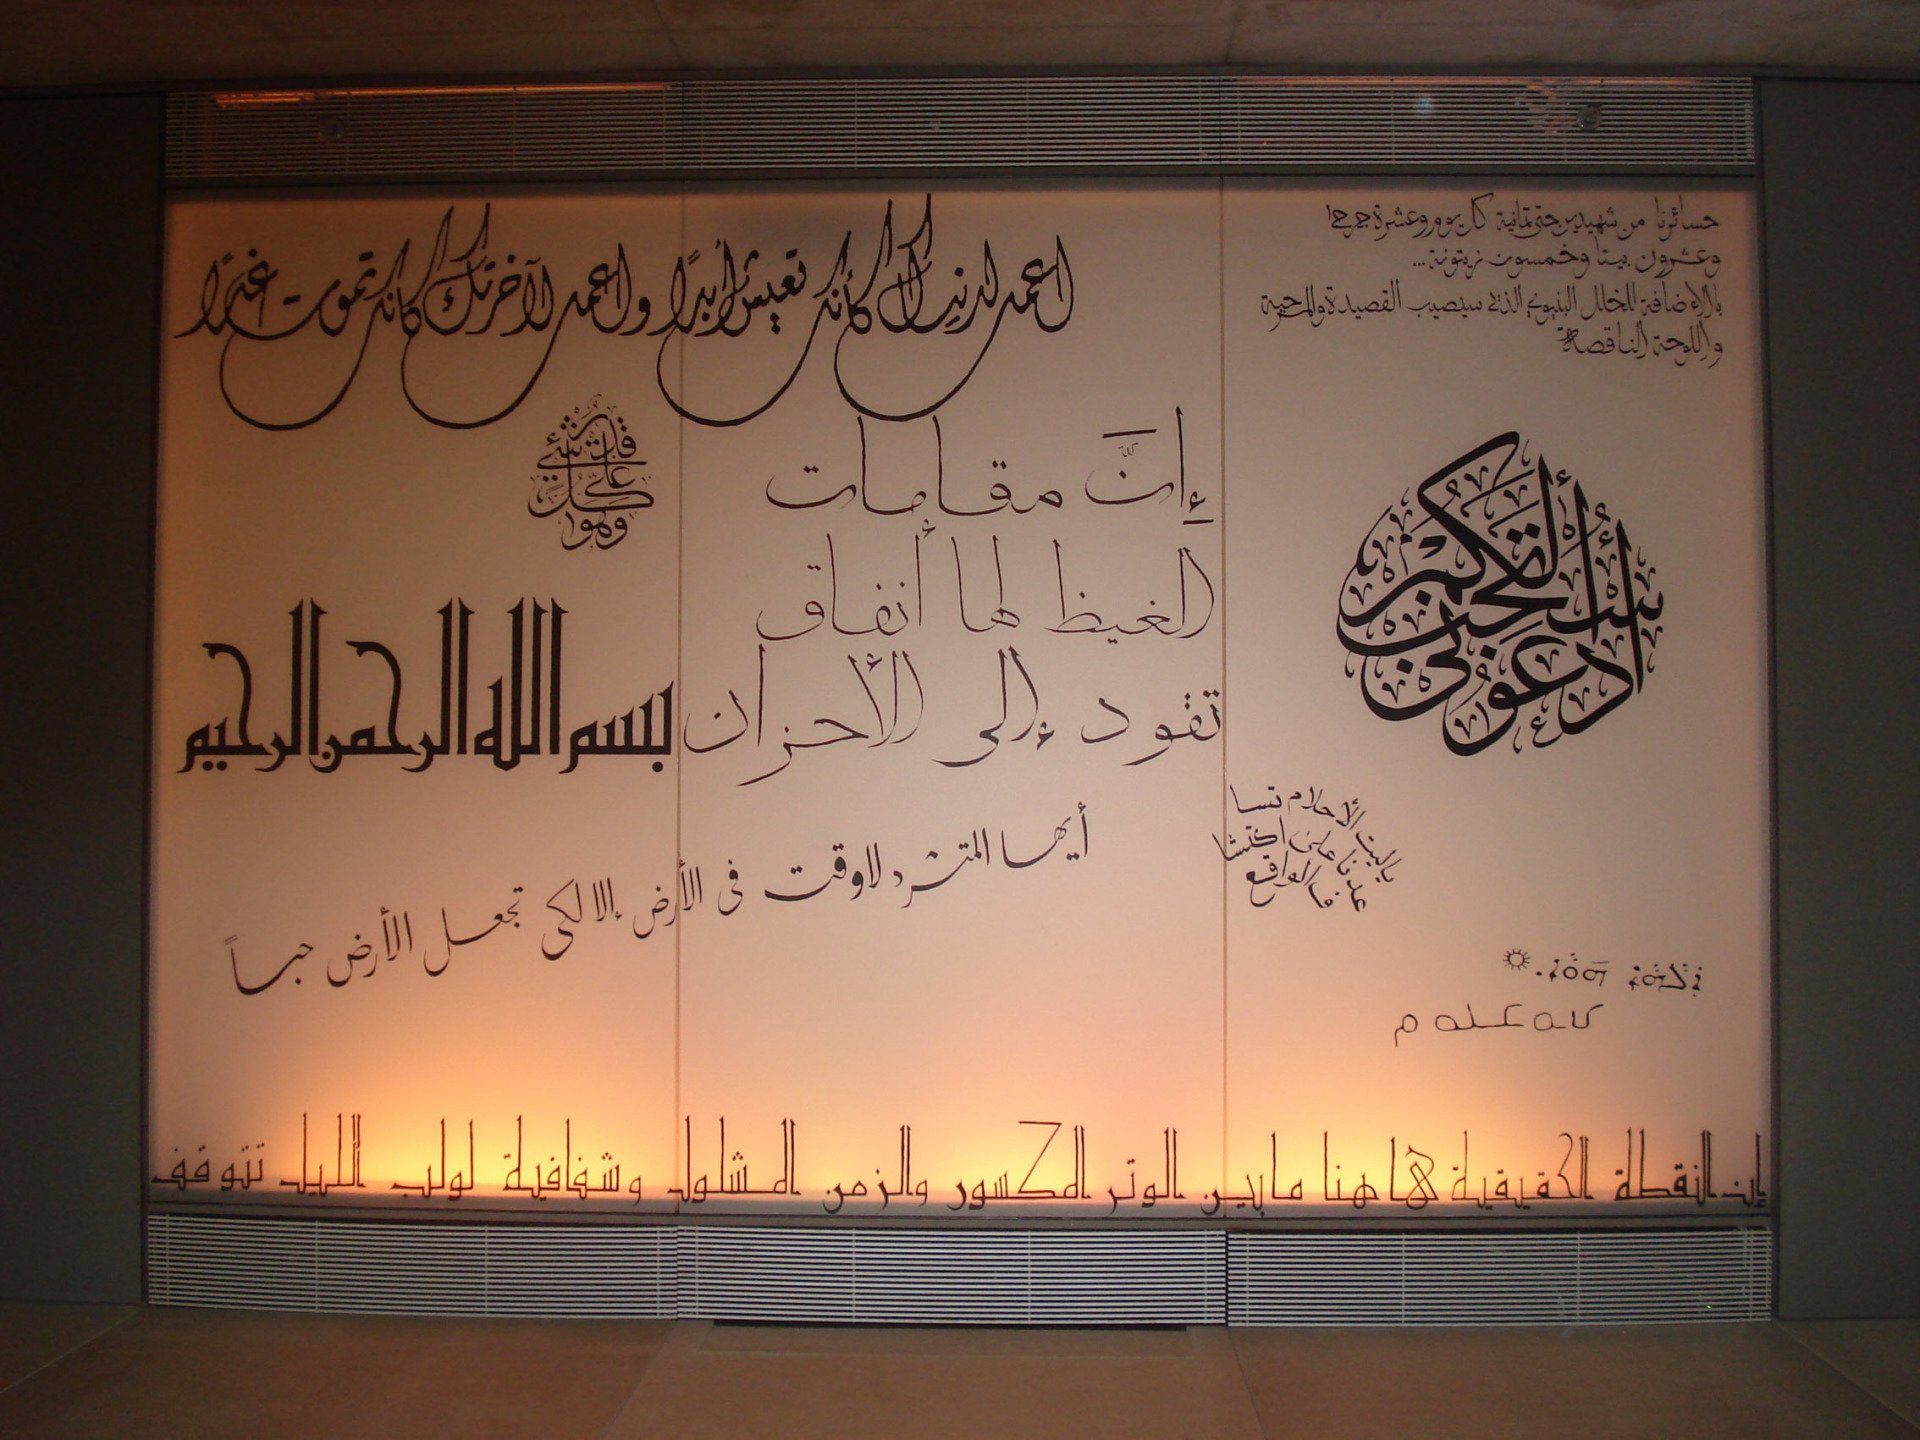 خسائرنا من شهيدين حتى ثمانية كل يوم وعشرة جرحى
وعشرون بيتا وخمسون زيتونة...
بالإضافة للخلل البنيوي الذي سيصيب القصيدة والمسرحية
واللوحة الناقصة
اعمل لدنياك كأنك تعيش أبدا واعمل لآخرتك كأنك تموت غدا
وهو على كل شيء قدير
إنَّ مقامات
الغيظ لها أنفاق
تقود إلى الأحزان
ادعوني أستجب لكم
بسم الله الرحمن الرحيم
ياليت الأحلام تسا
عدنا على اكتشا
ف الواقع
أيها المتشرد لا وقت في الأرض إلا لكي تجعل الأرض حباً
إن النقطة الحقيقية ها هنا ما بين الوتر المكسور والزمن المشلول وشفافية لولب الليل تتوقف